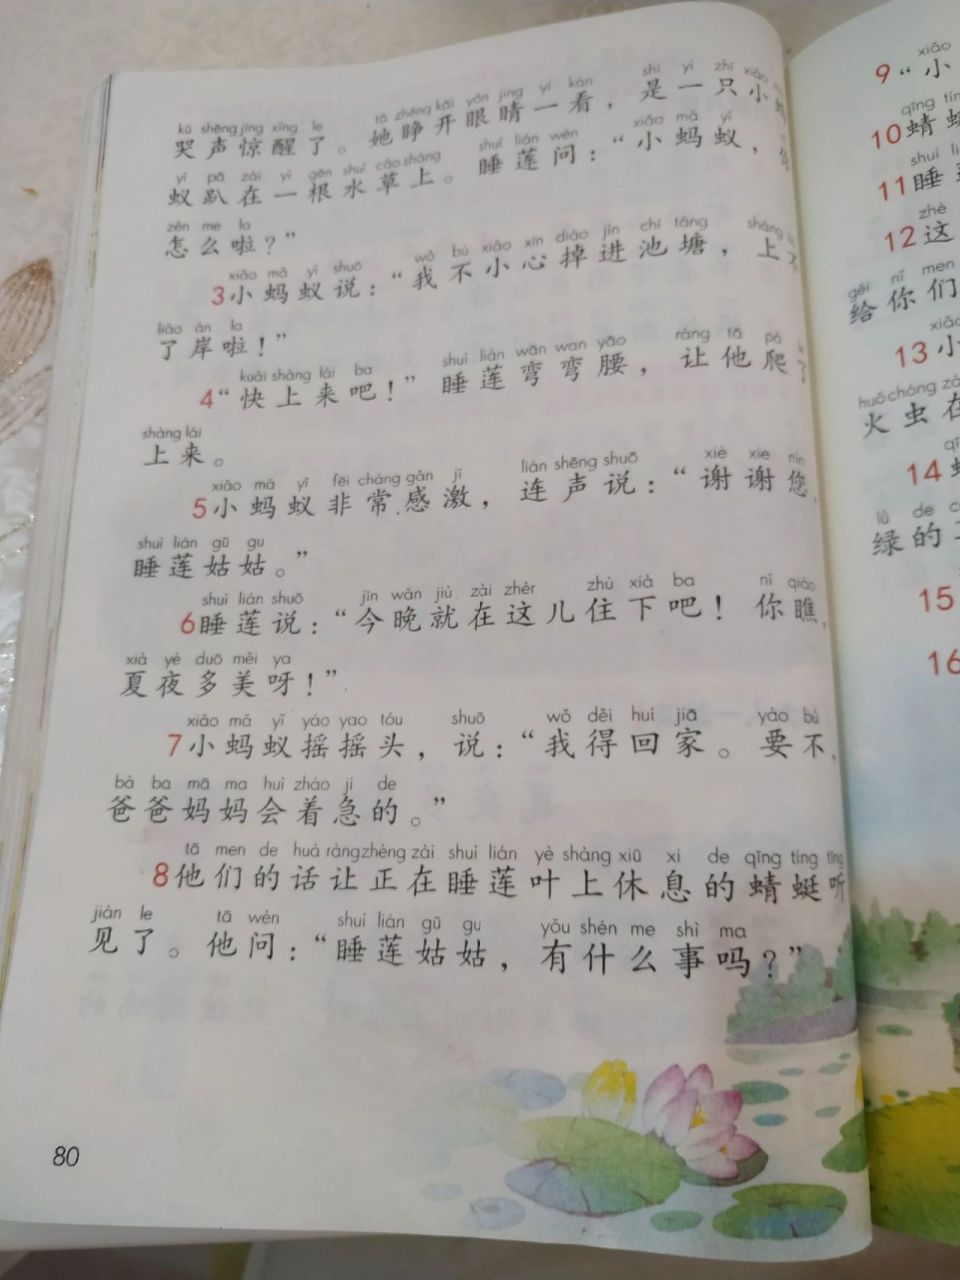 kū shēng jīng xǐng le tā zhēng kāi yǎn jing yí kàn shì yì zhī xiǎo
哭声惊醒了。她睁开眼睛一看，是一只小
yǐ pā zài yì gēn shuǐ cǎo shàng shuì lián wèn xiǎo mǎ yǐ
蚁趴在一根水草上。睡莲问：“小蚂蚁，
zěn me la
怎么啦？”
xiǎo mǎ yǐ shuō wǒ bù xiǎo xīn diào jìn chí táng shàng
3小蚂蚁说：“我不小心掉进池塘，上不
liǎo àn la
了岸啦！”
kuài shàng lái ba shuì lián wān wan yāo ràng tā pá
4“快上来吧！”睡莲弯弯腰，让他爬
shàng lái
上来。
xiǎo mǎ yǐ fēi cháng gǎn jī lián shēng shuō xiè xie nín
5小蚂蚁非常感激，连声说：“谢谢您，
shuì lián gū gu
睡莲姑姑。”
shuì lián shuō jīn wǎn jiù zài zhèr zhù xià ba nǐ qiáo
6睡莲说：“今晚就在这儿住下吧！你瞧，
xià yè duō měi ya
夏夜多美呀！”
xiǎo mǎ yǐ yáo yao tóu shuō wǒ děi huí jiā yào bù
7小蚂蚁摇摇头，说：“我得回家。要不，
bà ba mā ma huì zháo jí de
爸爸妈妈会着急的。”
tā men de huà ràng zhèng zài shuì lián yè shàng xiū xi de qīng tíng tīng
8他们的话让正在睡莲叶上休息的蜻蜓听
jiàn le tā wèn shuì lián gū gu yǒu shén me shì ma
见了。他问：“睡莲姑姑，有什么事吗？”
80
xiǎo
9“小
qīng tíng
10蜻蜓
shuì
11睡
zhè
12这
gěi nǐ men
给你们
xiǎo
13小
huǒ chóng
火虫在
14
lǜ de
绿的
15
16